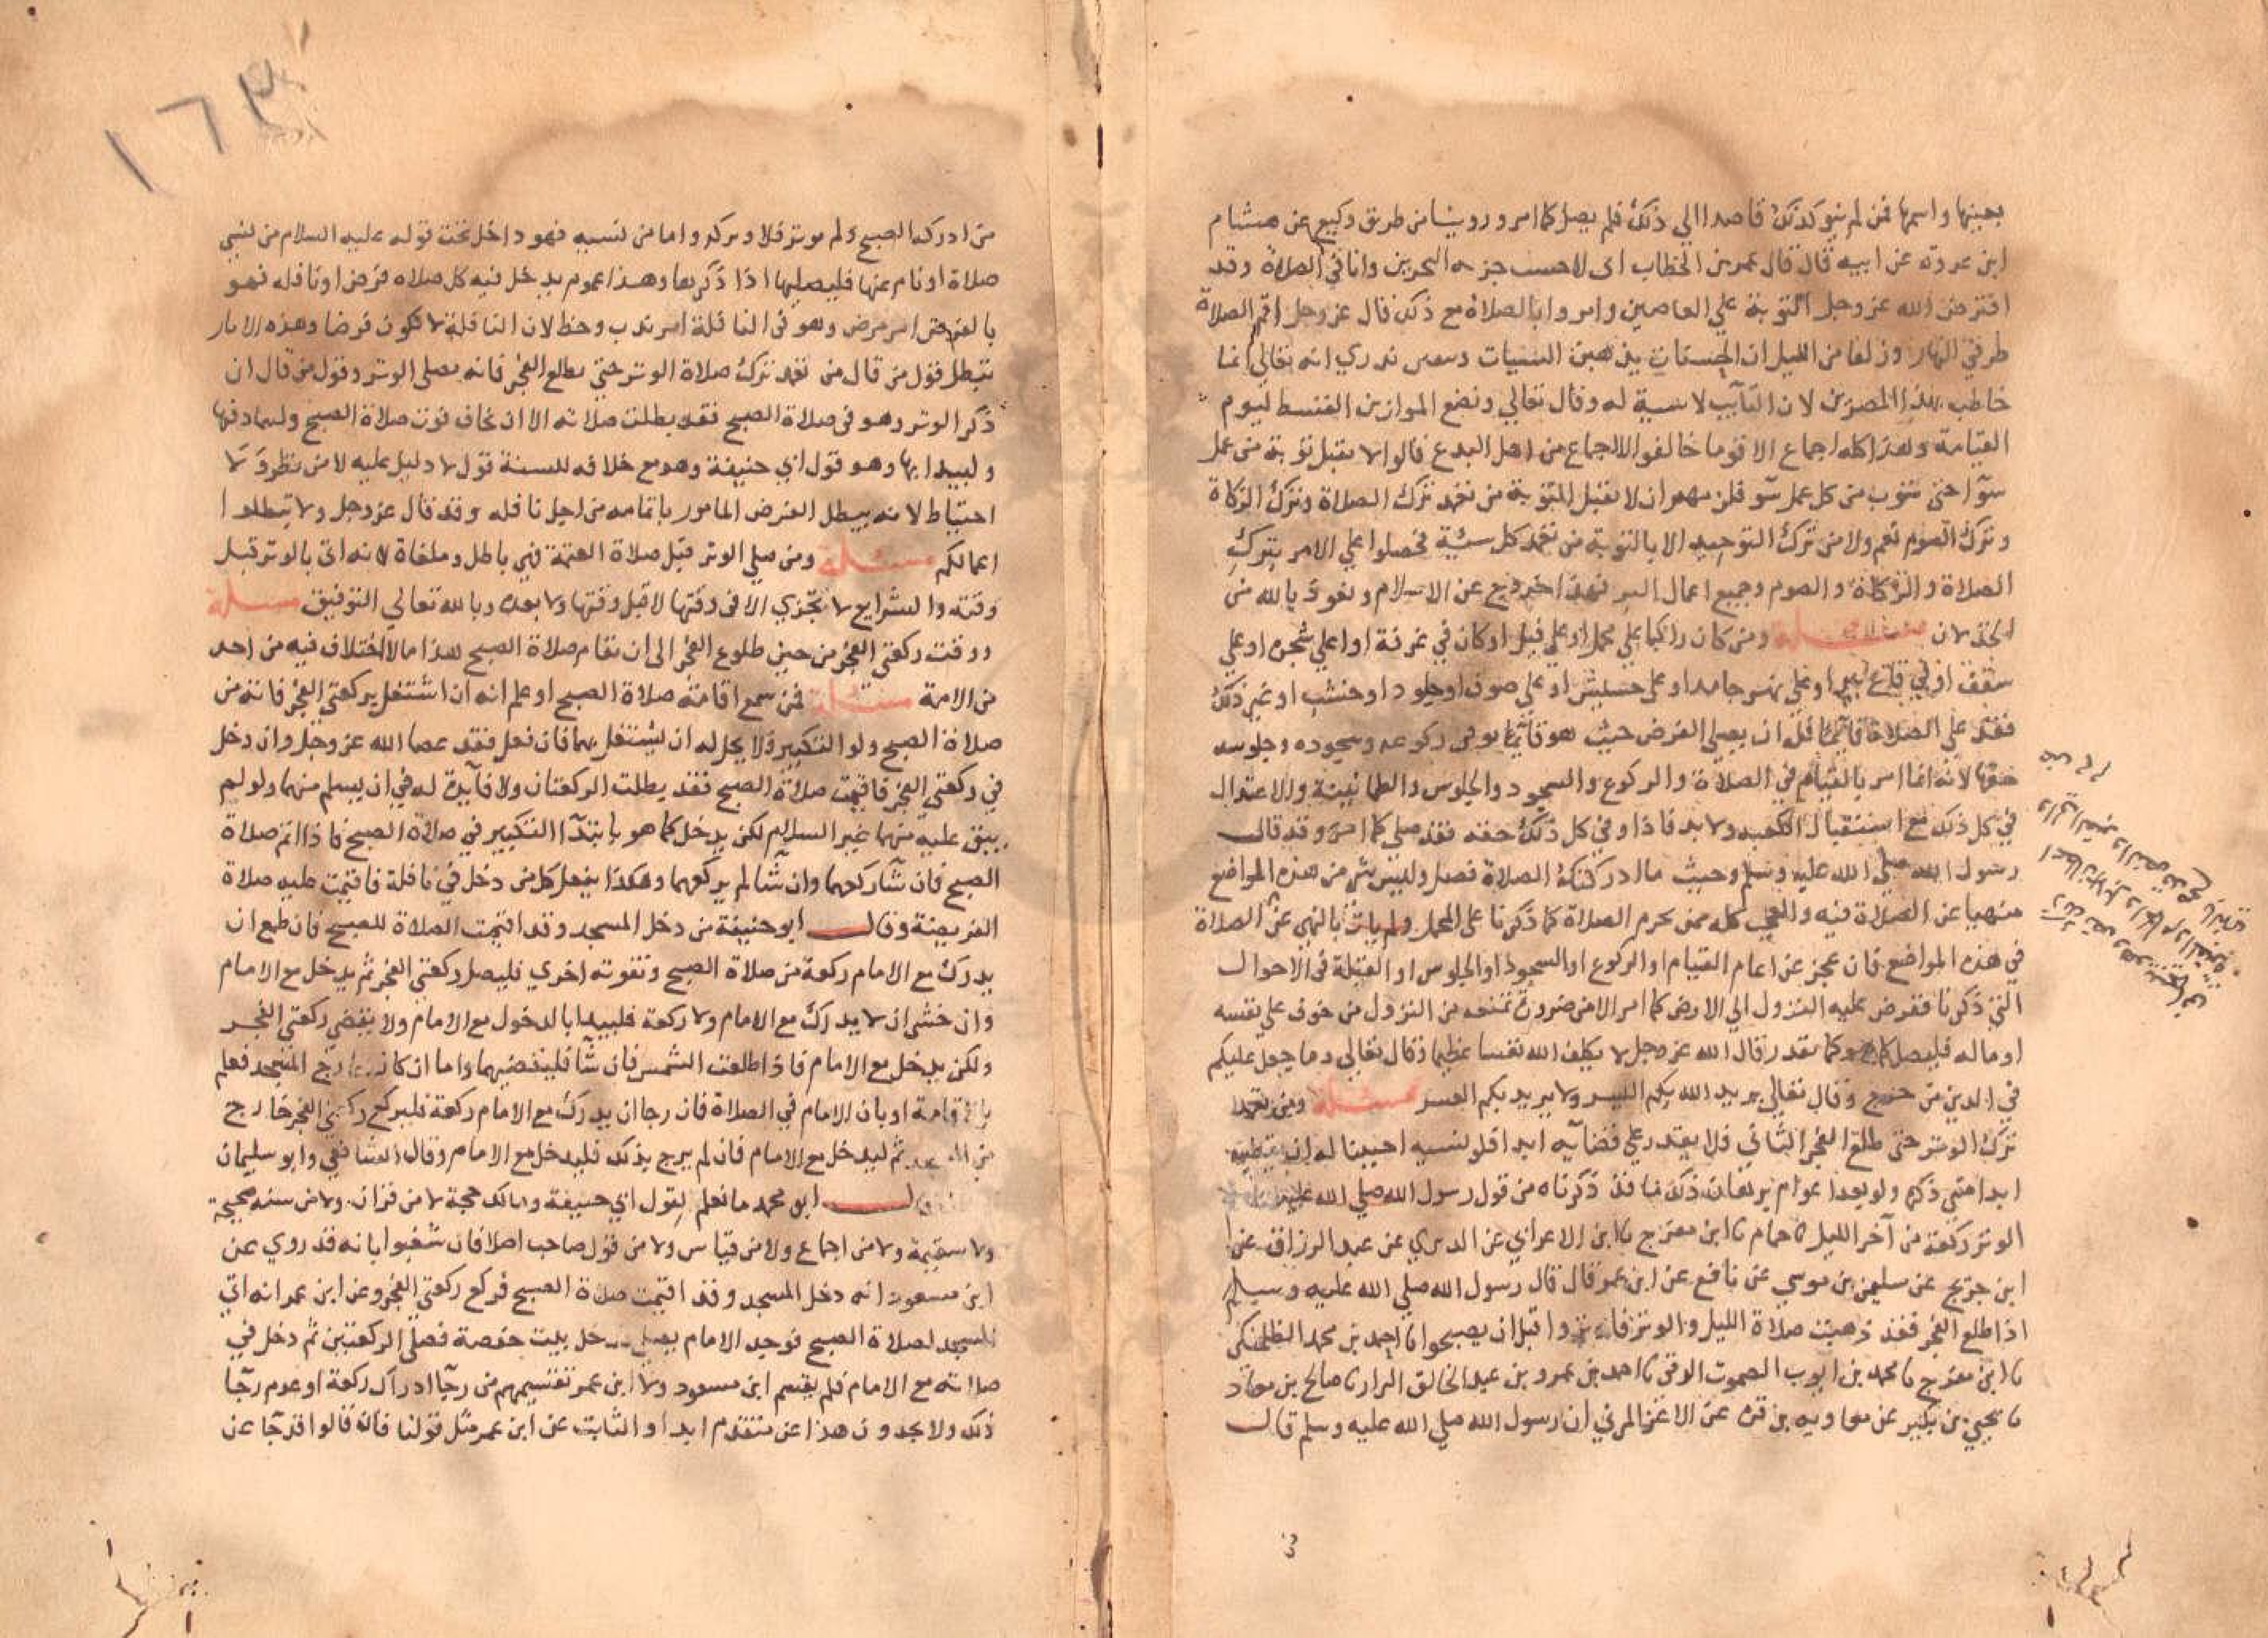 بعينها واسمها فمن لم ينو كذلك قاصدا الي ذلك فلم يصل كما امر وروينا من طريق وكيع عن هشام
ابن عروة عن ابيه قال قال عمر بن الخطاب اني لاحسب جزية البحرين وانا في الصلاة وقد
افترض الله عز وجل التوبة علي العاصين وامروا بالصلاة مع ذلك قال عز وجل اقم الصلاة
طرفي النهار وزلفا من الليل ان الحسنات يذهبن السيات وبيقين ندري انه تعالي انما
خاطب بهذا المصرين لان التايب لا سيية له وقال تعالي ونضع الموازين القسط ليوم
القيامة وهذا كله اجماع الا قوما خالفوا الاجماع من اهل البدع قالوا لا تقبل توبة من عمل
سوا حتي يتوب من كل عمل سو فلزمهم ان لا تقبل التوبة من تعمد ترك الصلاة وترك الزكاة
وترك الصوم نعم ولا من ترك التوحيد الا بالتوبة من تعمد كل سيئة فحصلوا علي الامر بترك
الصلاة والزكاة والصوم وجميع اعمال البر وهذا خروج عن الاسلام ونعوذ بالله من
الخذلان مسئلة ومن كان راكبا علي محمل او علي فيل او كان في غرفة او اعلي شجرة او علي
سقف او في قاع بير او علي نهر جامد او علي حشيش او علي صوف او جلود او خشب او غير ذلك
فقدر علي الصلاة قائما فله ان يصلي الفرض حيث هو قائما يوفي ركوعه وسجوده وجلوسه
حقها لانه انما امر بالقيام في الصلاة والركوع والسجود والجلوس والطمانينة والاعتدال
في كل ذلك مع استقبال الكعبه ولا بد فاذا وفي كل ذلك حقه فقد صلي كما امر وقد قال
رسول الله صلي الله عليه وسلم وحيث ما ادركتك الصلاة فصل وليس شي من هذه المواضع
منهيا عن الصلاة فيه والعجب كله ممن يحرم الصلاة كما ذكرنا علي المحمل ولم يات بالنهي عن الصلاة
في هذه المواضع فان عجز عن اتمام القيام او الركوع او السجود او الجلوس او القبلة في الاحوال
التي ذكرنا ففرض عليه النزول الي الارض كما امر الا من ضرورة تمنعه من النزول من خوف علي نفسه
او ماله فليصل كما هو كما يقدر قال الله عز وجل لا يكلف الله نفسا وقال تعالي وما جعل عليكم
في الدين من حرج وقال تعالي يريد الله بكم اليسر ولا يريد بكم العسر مسئلة ومن تعمد
ترك الوتر حتي طلع الفجر الثاني فلا يقدر علي قضايه ابدا فلو نسيه احببنا له ان يقضيه
ابدا متي ذكره ولو بعد اعوام برهان ذلك ما قد ذكرناه من قول رسول الله صلي الله عليه وسلم
الوتر ركعة من آخر الليل نا حمام نا ابن مفرج نا ابن الاعرابي عن الدبري عن عبد الرزاق عن
ابن جريج عن سليمن بن موسي عن نافع عن ابن عمر قال قال رسول الله صلي الله عليه وسلم
اذا طلع الفجر فقد ذهبت صلاة الليل والوتر فاوتروا قبل ان يصبحوا نا احمد بن محمد الطلمنكي
نا ابن مفرج نا محمد بن ايوب الصموت الرقي نا احمد بن عمرو بن عبد الخالق البزار نا صالح بن معاذ
نا يحيي بن بكير عن معاويه بن قره عن الاغر المزني ان رسول الله صلي الله عليه وسلم قال
١٦٣
من ادركه الصبح ولم يوتر فلا وتر له واما من نسيه فهو داخل تحت قوله عليه السلام من نسي
صلاة او نام عنها فليصليها اذا ذكرها وهذا عموم يدخل فيه كل صلاه فرض او نافله فهو
بالفرض امر فرض وهو في النافلة امر ندب وحظ لان النافلة لا تكون فرضا وهذه الاثار
تبطل قول من قال من تعمد ترك صلاة الوتر حتي يطلع الفجر فانه يصلي الوتر وقول من قال ان
ذكر الوتر وهو في صلاة الصبح فقد بطلت صلاته الا ان يخاف فوت صلاة الصبح
وليبدا بها وهو قول ابي حنيفة وهو مع خلافه للسنة قول لا دليل عليه لا من نظر ولا
احتياط لانه يبطل الفرض المامور باتمامه من اجل نافله وقد قال عز وجل ولا تبطلوا
اعمالكم مسئلة ومن صلي الوتر قبل صلاة العتمة فهي باطل وملغاة لانه اتي بالوتر قبل
وقته والشرايع لا تجزي الا في وقتها لا قبل وقتها ولا بعده وبالله تعالي التوفيق مسئلة
ووقت ركعتي الفجر من حين طلوع الفجر الي ان تقام صلاة الصبح هذا ما لا اختلاف فيه من احد
من الامة مسئلة فمن سمع اقامة صلاة الصبح او علم انه ان اشتغل بركعتي الفجر فاته من
صلاة الصبح ولو التكبير فلا يحل له ان يشتغل بهما فان فعل فقد عصا الله عز وجل وان دخل
في ركعتي الفجر فاقيمت صلاة الصبح فقد بطلت الركعتان ولا فآيدة له في ان يسلم منهما ولو لم
يبق عليه منهما غير السلام لكن يدخل كما هو بابتدآ التكبير في صلاة الصبح فاذا اتم صلاة
الصبح فان شآ ركعهما وان شآ لم يركعهما وهكذا يفعل كل من دخل في نافلة فاقيمت عليه صلاة
الفريضة وقال ابو حنيفة من دخل المسجد وقد اقيمت الصلاة للصبح فان طمع ان
يدرك مع الامام ركعة من صلاة الصبح وتفوته اخري فليصل ركعتي الفجر ثم يدخل مع الامام
وان خشي ان لا يدرك مع الامام ولا ركعة فليبدا بالدخول مع الامام ولا يقضي ركعتي الفجر
ولكن يدخل مع الامام فاذا طلعت الشمس فان شآ فليقضهما واما ان كان خارج المسجد فعلم
بالاقامة او بان الامام في الصلاة فان رجا ان يدرك مع الامام ركعة فليركع ركعتي الفجر خارج
من المسجد ثم ليدخل مع الامام فان لم يرج بذلك فليدخل مع الامام وقال الشافعي وابو سليمان
ابو محمد ما نعلم لقول ابي حنيفة ومالك حجة لا من قران ولا من سنه صحيحة
ولا سقيمة ولا من اجماع ولا من قياس ولا من قول صاحب اصلا فان شغبوا بانه قد روي عن
ابن مسعود انه دخل المسجد وقد اقيمت صلاة الصبح فركع ركعتي الفجر وعن ابن عمر انه اتي
المسجد لصلاة الصبح فوجد الامام يصلي فدخل بيت حفصة فصلي الركعتين ثم دخل في
صلاته مع الامام فلم يقسم ابن مسعود ولا ابن عمر تقسيمهم من رجآ ادراك ركعة او عدم رجآ
ذلك ولا يجدون هذا عن متقدم ابدا والثابت عن ابن عمر مثل قولنا فانه قالوا قد جا عن